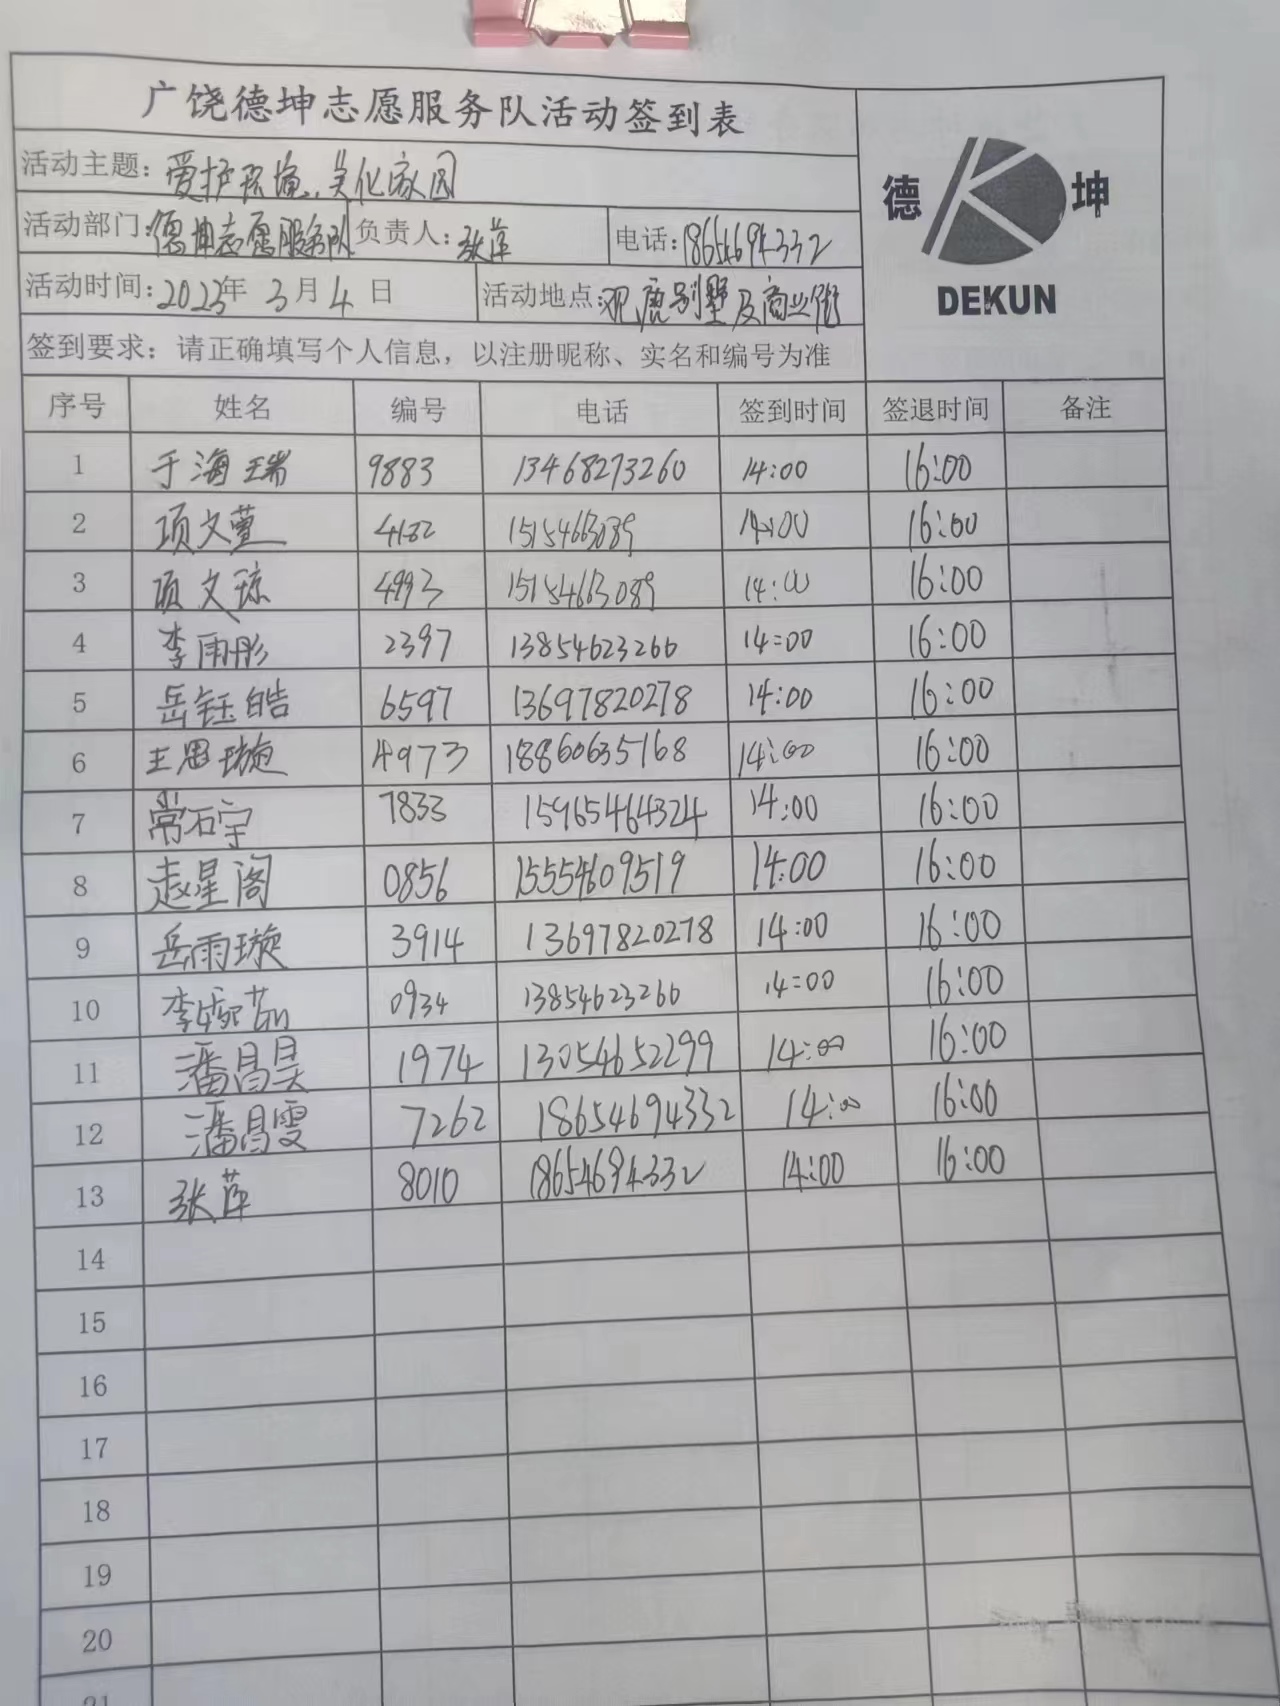 广饶德坤志愿服务队活动签到表
德 坤
DEKUN
活动主题：爱护环境、美化家园
活动部门：德坤志愿服务队 负责人：张萍 电话：18654694332
活动时间：2023年 3月 4日 活动地点：观鹿别墅及商业街
签到要求：请正确填写个人信息，以注册昵称、实名和编号为准
序号 姓名 编号 电话 签到时间 签退时间 备注
1 于海瑞 9883 13468273260 14:00 16:00
2 项文萱 15154663089 14:00 16:00
3 项文琼 4993 15154663089 14:00 16:00
4 李雨彤 2397 13854623266 14:00 16:00
5 岳钰皓 6597 13697820278 14:00 16:00
6 王思璇 4973 18860635168 14:00 16:00
7 常石宇 7833 15965464324 14:00 16:00
8 赵星阁 0856 15554609519 14:00 16:00
9 岳雨璇 3914 13697820278 14:00 16:00
10 李 0934 13854623266 14:00 16:00
11 潘昌昊 1974 13054652299 14:00 16:00
12 潘昌雯 7262 18654694332 14:00 16:00
13 张萍 8010 18654694332 14:00 16:00
14
15
16
17
18
19
20
21